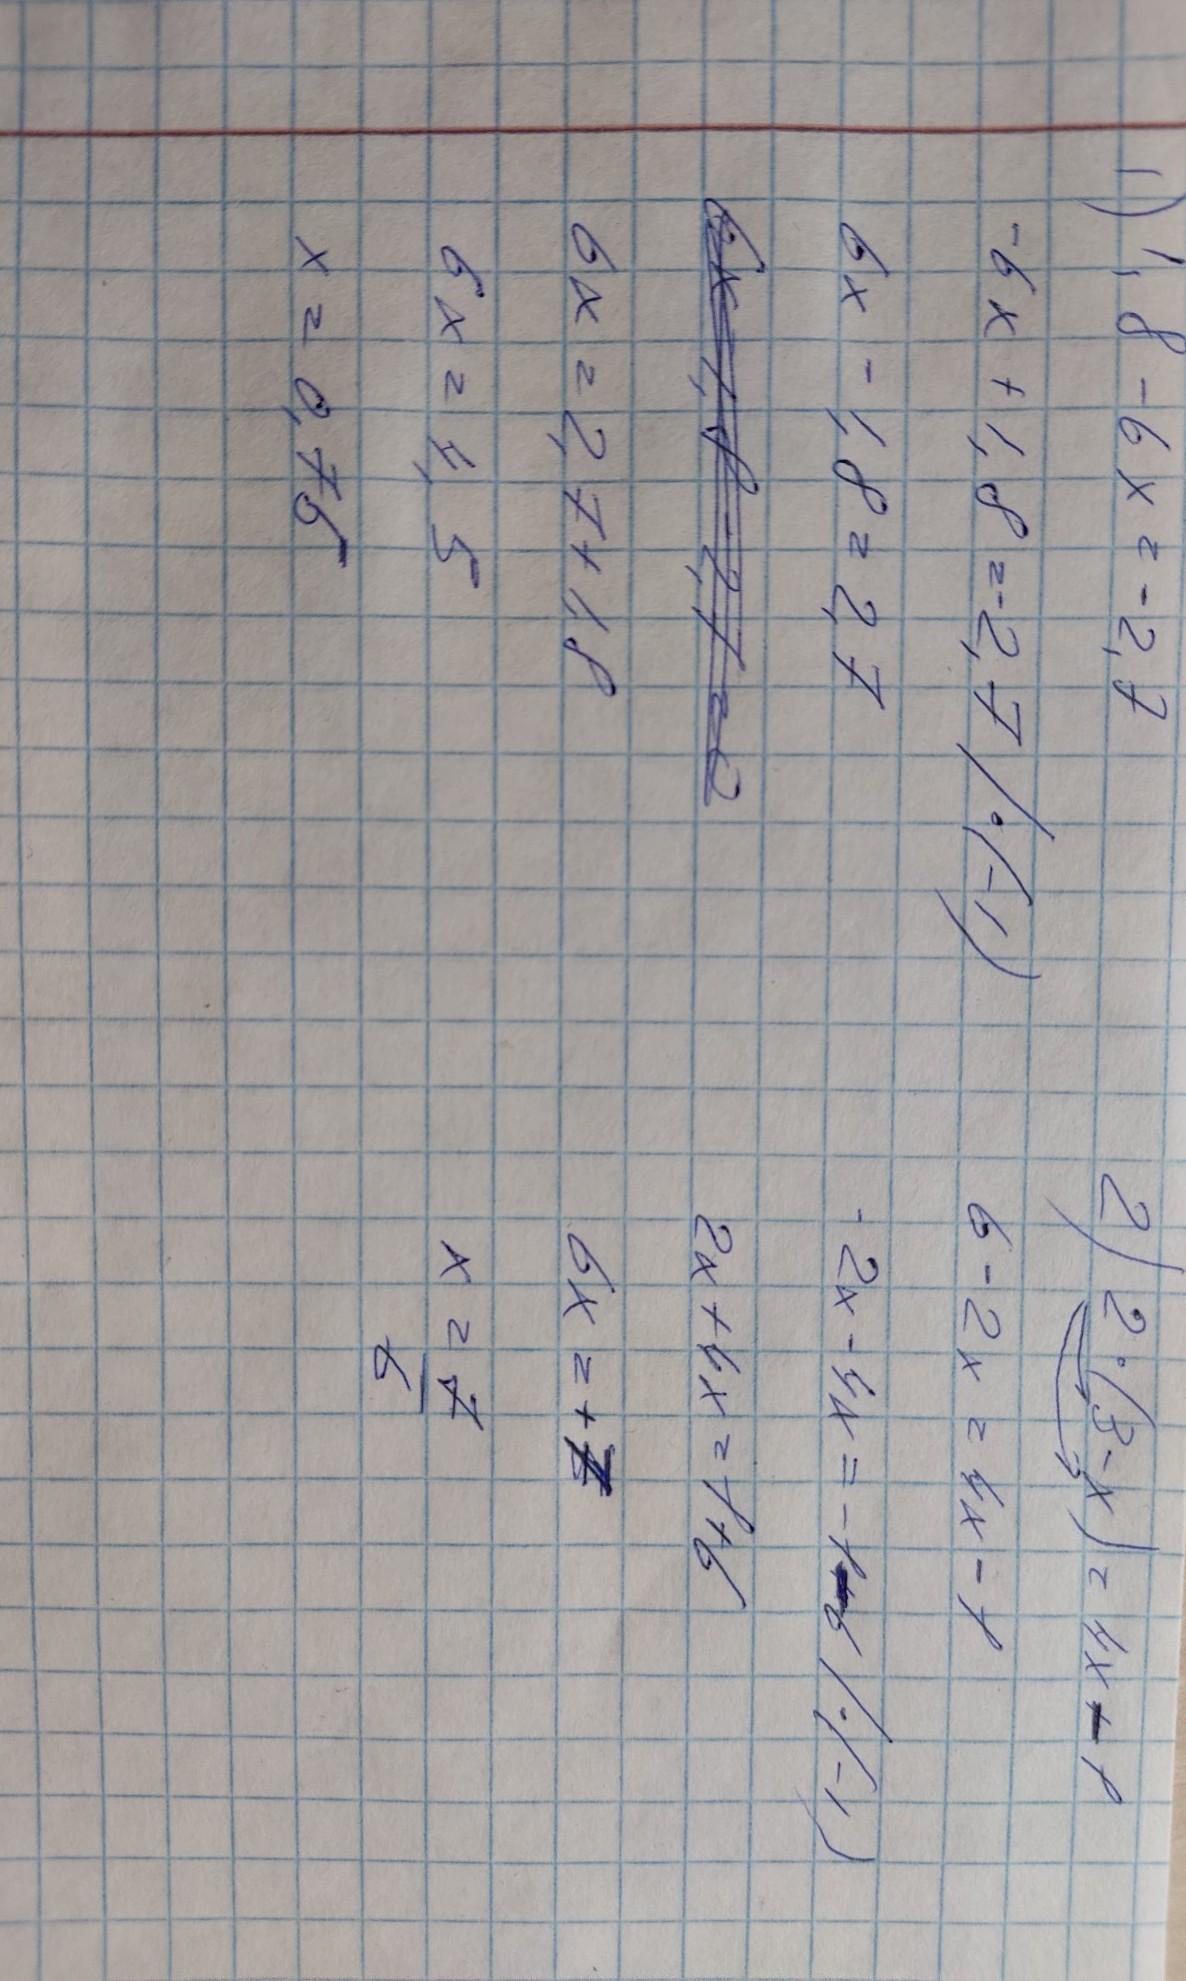 1) 1,8 - 6x = -2,7
-6x + 1,8 = -2,7 / · (-1)
6x - 1,8 = 2,7
6x = 2,7 + 1,8
6x = 4,5
x = 0,75
2) 2 · (3 - x) = 4x - 1
6 - 2x = 4x - 1
-2x - 4x = -1 - 6 / · (-1)
2x + 4x = 1 + 6
6x = + 7
x = 7/6